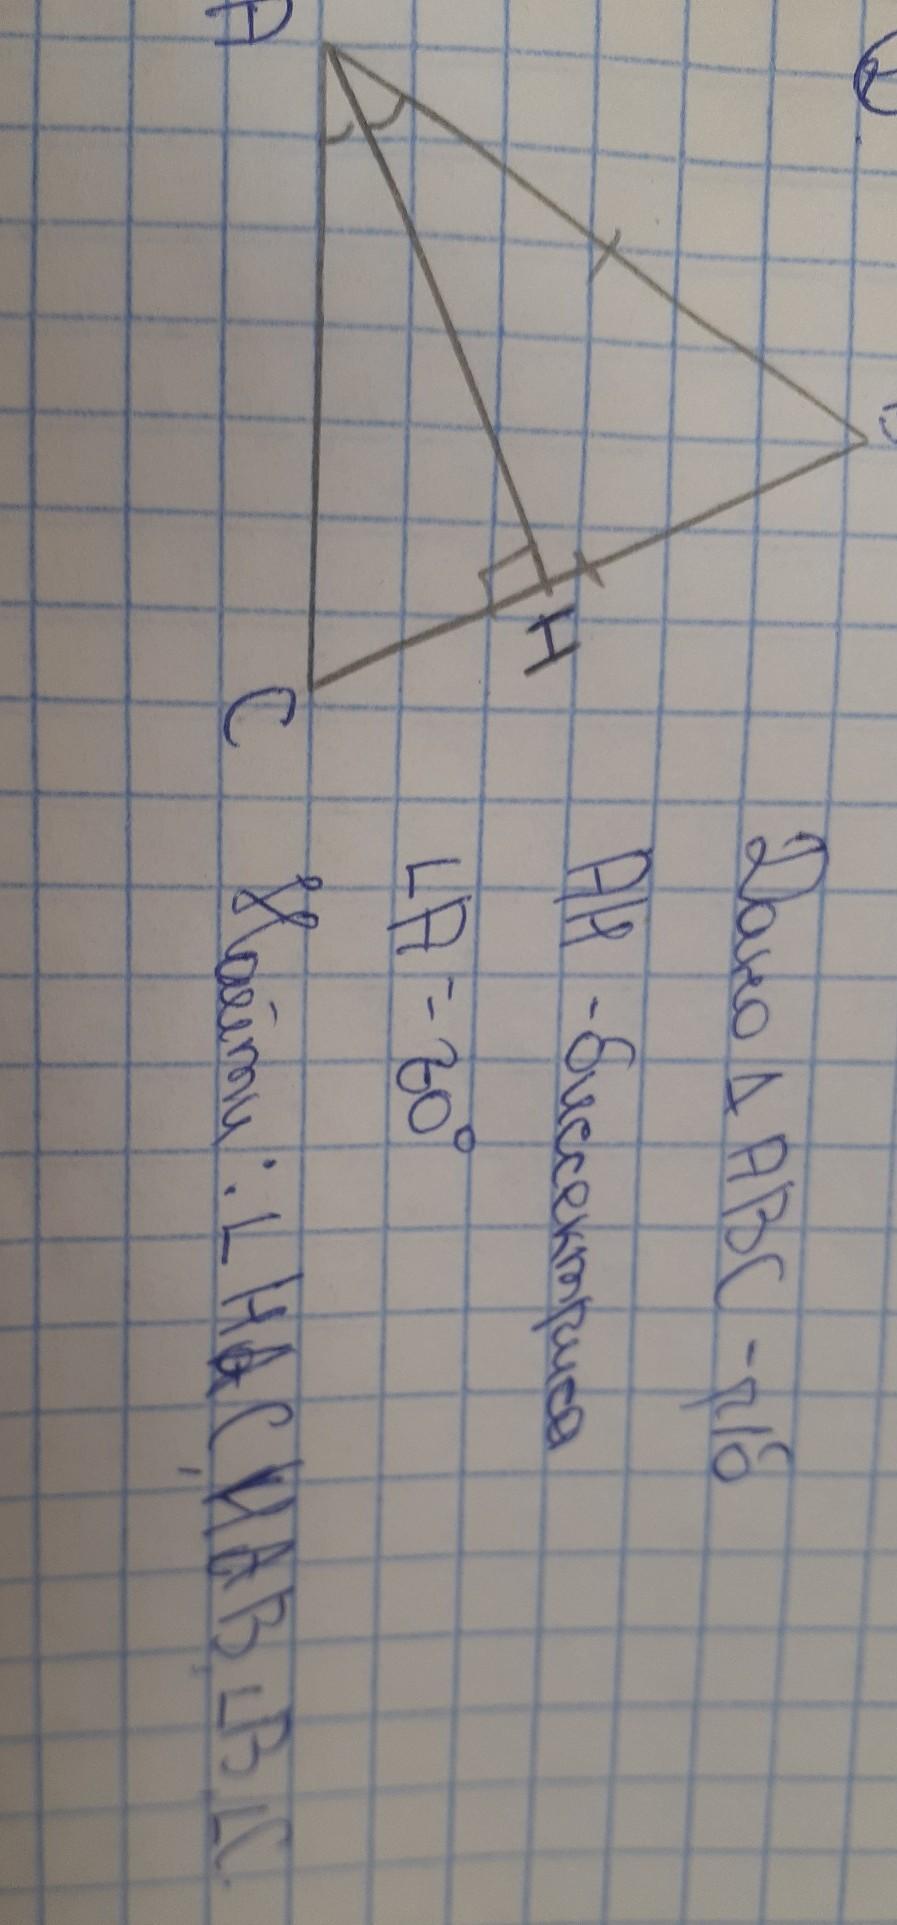 A
H
C
Дано Δ ABC - р/б
AH - биссектриса
∠A = 30°
Найти: ∠ HAC, HAB, ∠B, ∠C